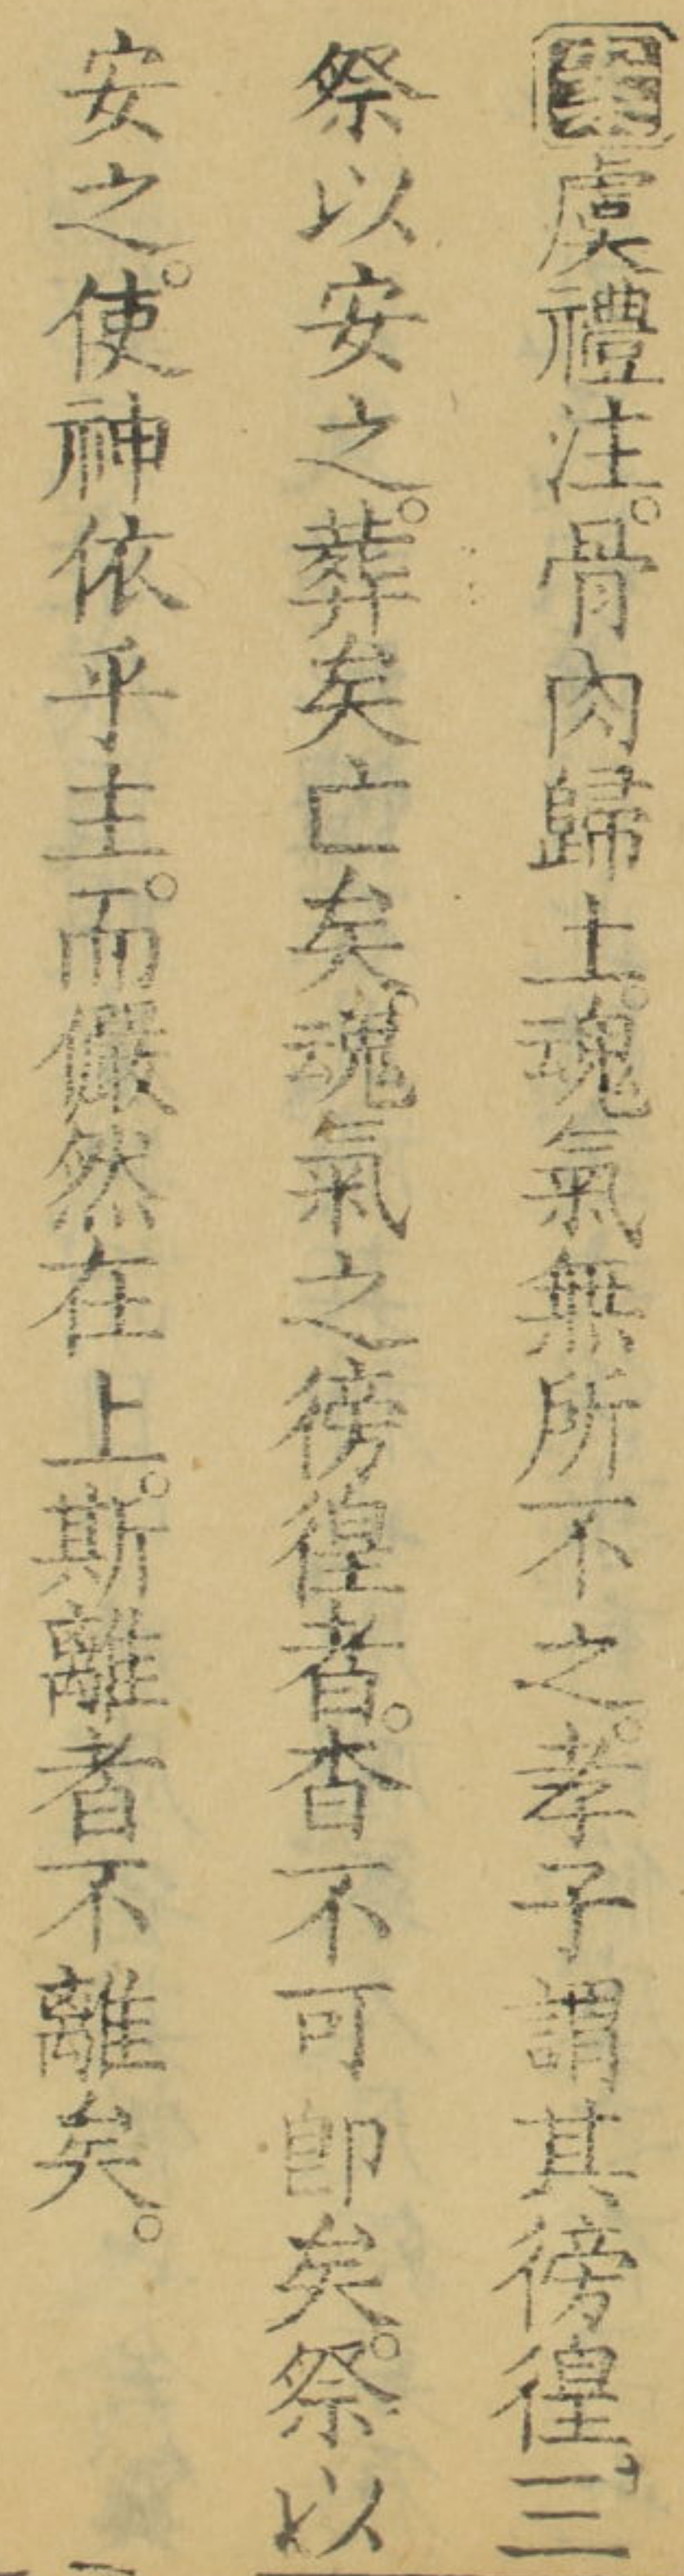 虞禮注。骨肉歸土。魂氣無所不之。孝子謂其徬徨。三
祭以安之。葬矣亡矣。魂氣之徬徨者。杳不可卽矣。祭以
安之。使神依乎主。而儼然在上。斯離者不離矣。